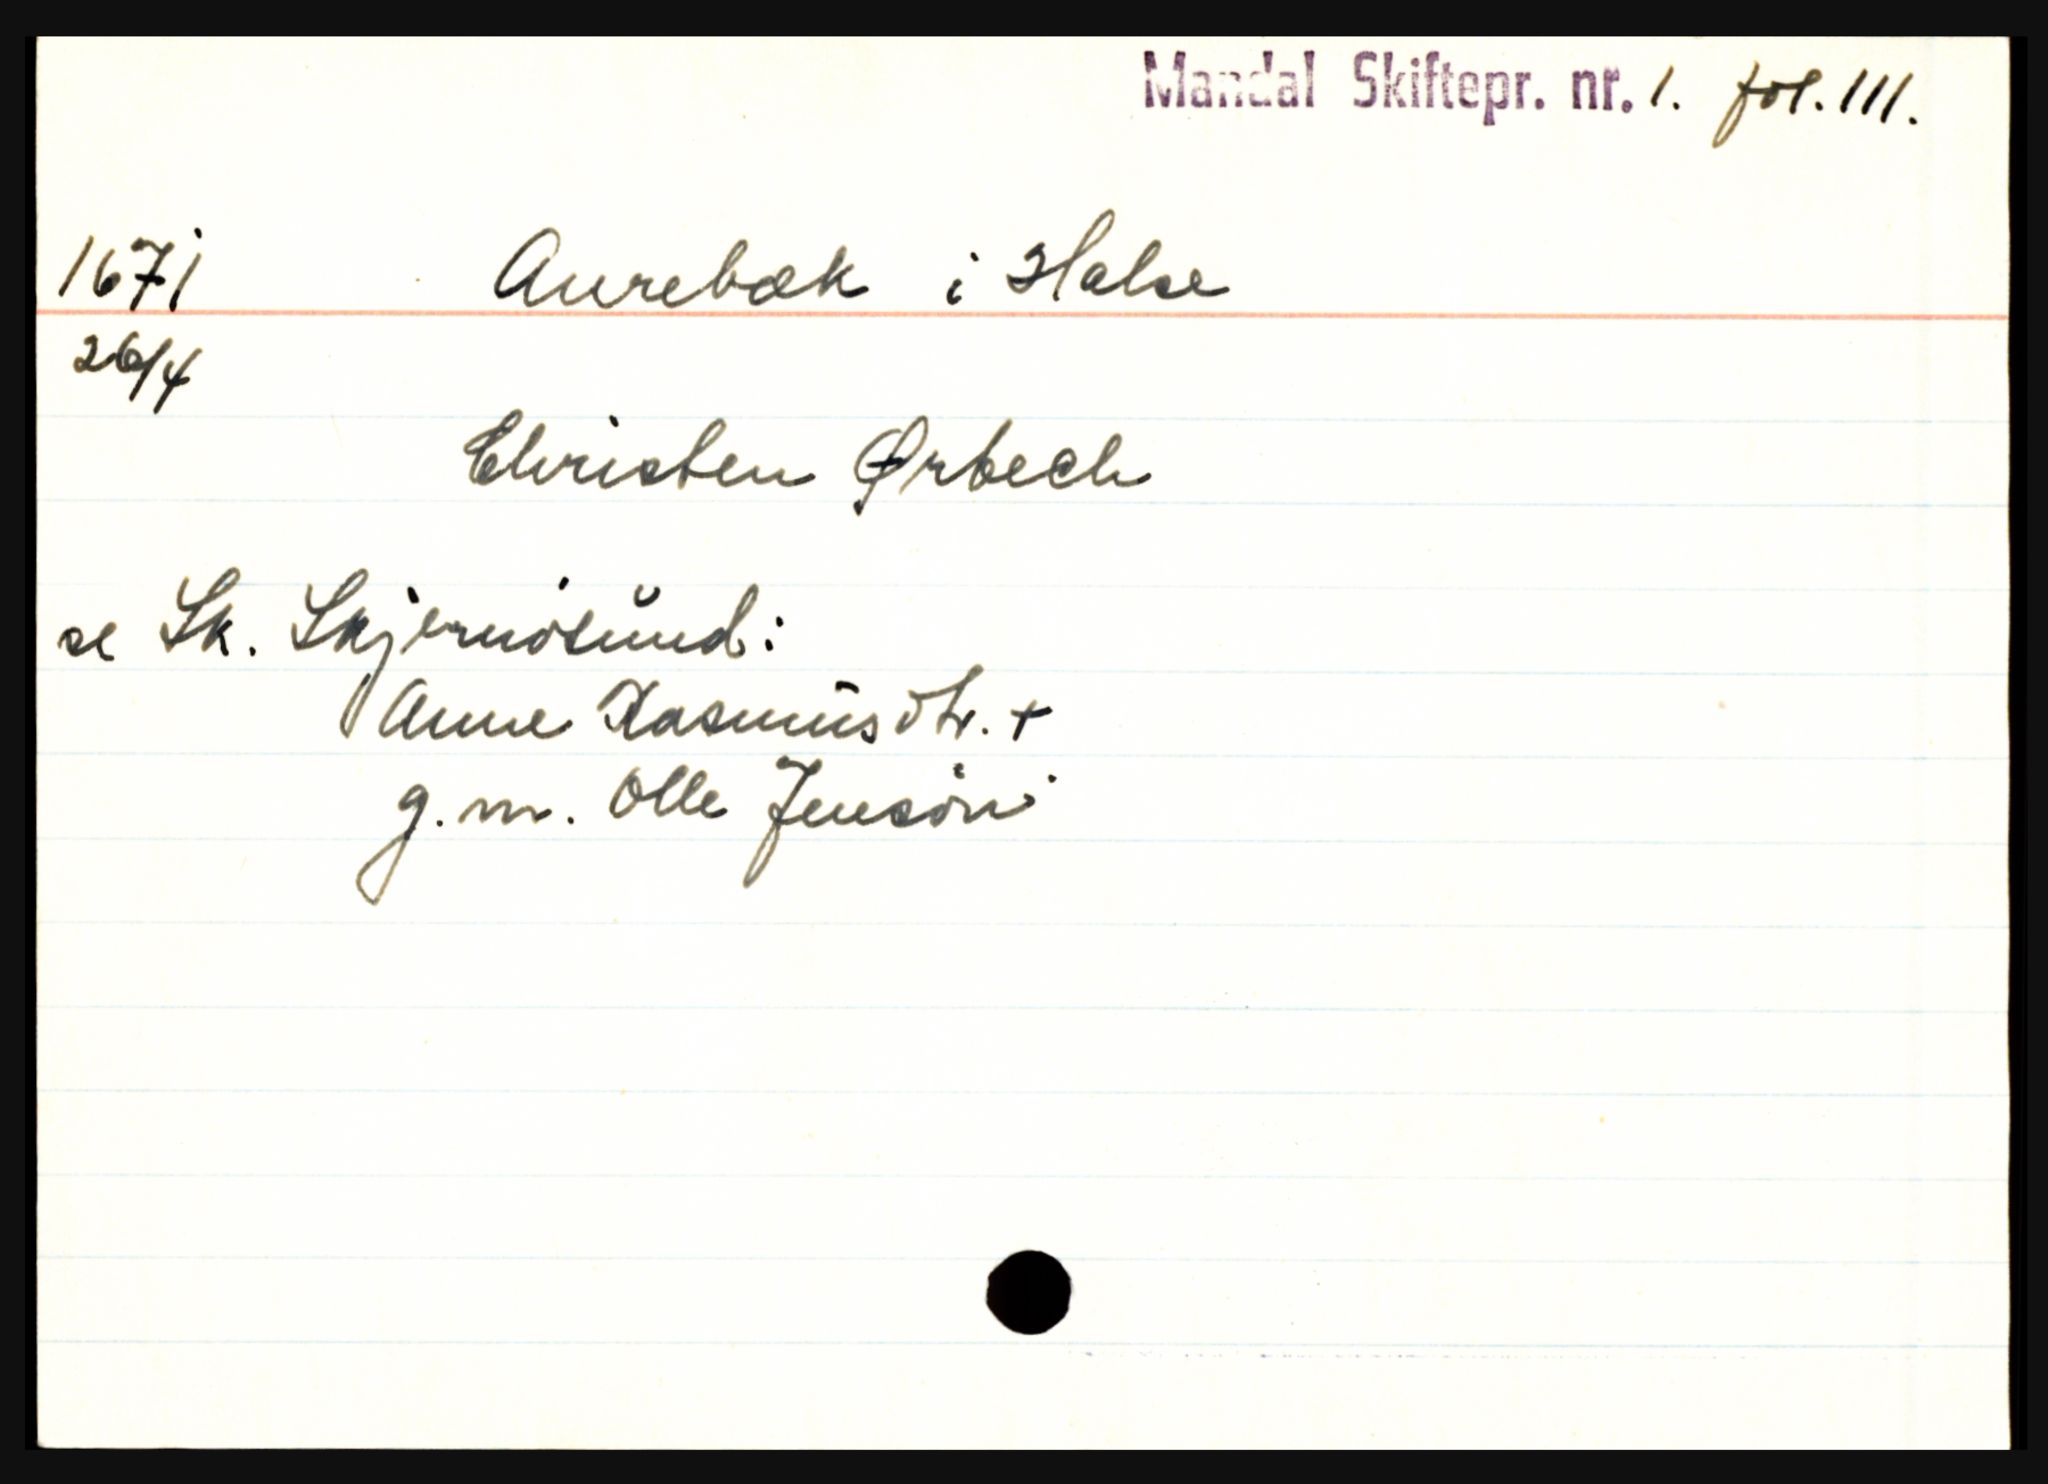 Mandal Skiftepr. nr. 1. fol. 111.
1671 Aurebæk i Halse
26/4
Christen Ørbech
se Sk. Skjernøsund:
Anne Rasmusdtr. +
g. m. Olle Jensøn